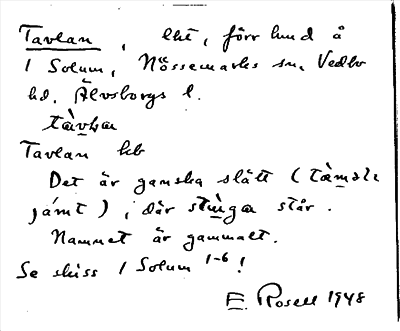 Tavlan, lht, förr hmd å
1 Solum, Nössemarks sn, Vedbo
hd, Älvsborgs l.
tàvɬa
Tavlan lht
Det är ganska slätt (tàməlı
jámt), där stúga står.
Namnet är gammalt.
Se skiss 1 Solum 1-6!
E. Rosell 1948